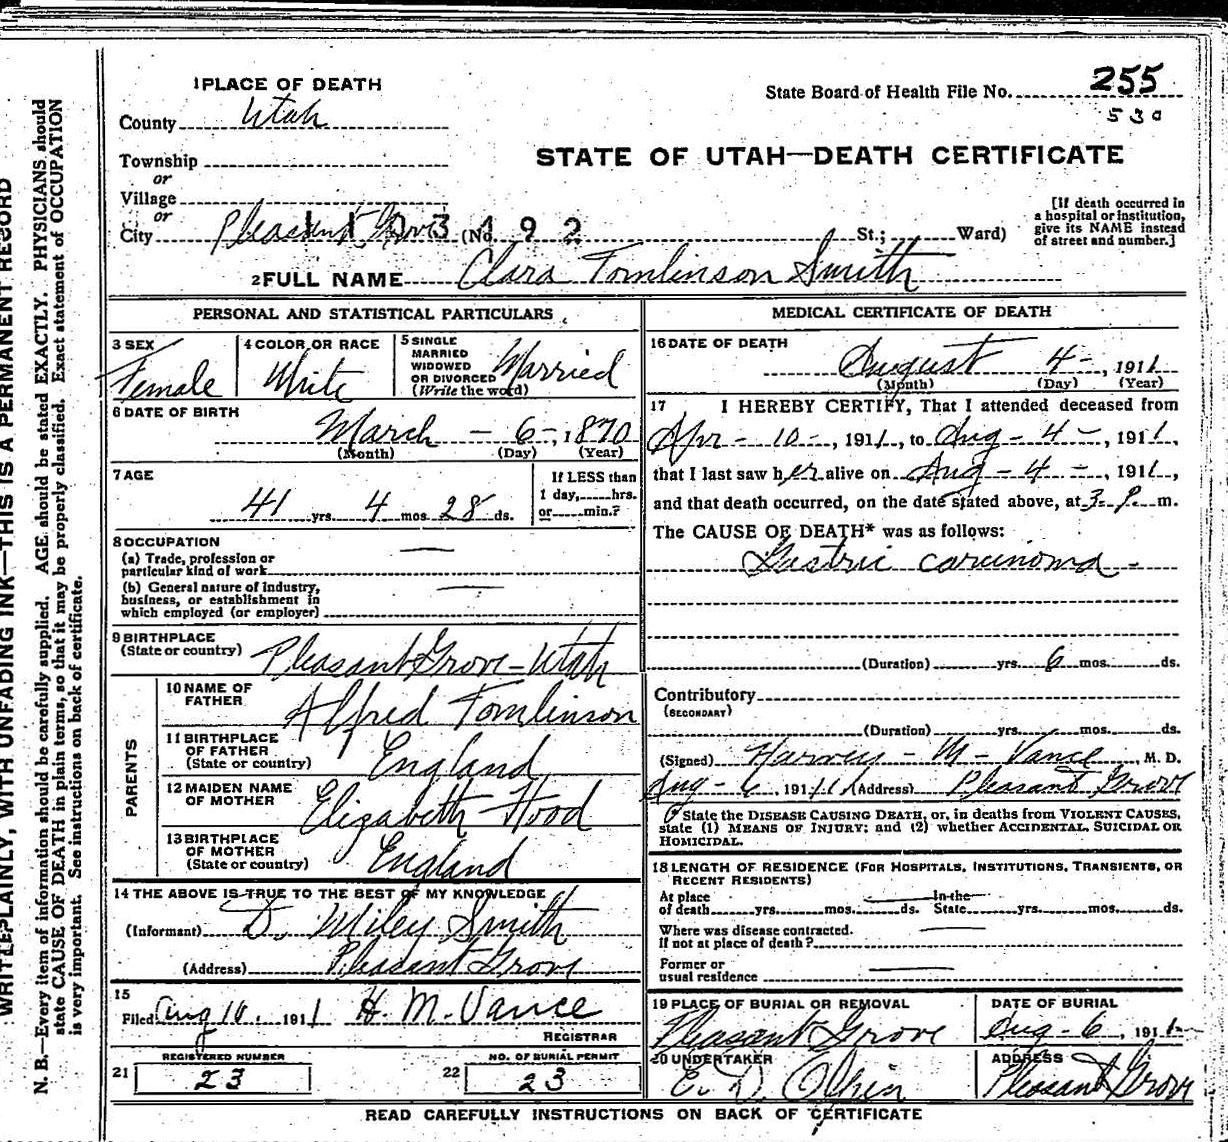 WRITE PLAINLY, WITH UNFADING INK—THIS IS A PERMANENT RECORD
N. B.—Every item of information should be carefully supplied. AGE should be stated EXACTLY. PHYSICIANS should
state CAUSE OF DEATH in plain terms, so that it may be properly classified. Exact statement of OCCUPATION
is very important. See instructions on back of certificate.
1 PLACE OF DEATH
County Utah
Township
or
Village
or
City Pleasant Grove (No. St.; Ward)
1103192
State Board of Health File No. 255
530
STATE OF UTAH—DEATH CERTIFICATE
[If death occurred in
a hospital or institution,
give its NAME instead
of street and number.]
2 FULL NAME Clara Tomlinson Smith
PERSONAL AND STATISTICAL PARTICULARS
3 SEX
Female
4 COLOR OR RACE
White
5 SINGLE
MARRIED
WIDOWED
OR DIVORCED
(Write the word)
Married
6 DATE OF BIRTH
March - 6 -, 1870
(Month) (Day) (Year)
7 AGE
41 yrs. 4 mos. 28 ds.
If LESS than
1 day, hrs.
or min.?
8 OCCUPATION
(a) Trade, profession or
particular kind of work
(b) General nature of industry,
business, or establishment in
which employed (or employer)
9 BIRTHPLACE
(State or country) Pleasant Grove - Utah
PARENTS
10 NAME OF
FATHER Alfred Tomlinson
11 BIRTHPLACE
OF FATHER
(State or country) England
12 MAIDEN NAME
OF MOTHER Elizabeth Hood
13 BIRTHPLACE
OF MOTHER
(State or country) England
14 THE ABOVE IS TRUE TO THE BEST OF MY KNOWLEDGE
(Informant) D. Wiley Smith
(Address) Pleasant Grove
15
Filed Aug 10, 1911 H. M. Vance
REGISTRAR
REGISTERED NUMBER
21 23
NO. OF BURIAL PERMIT
22 23
MEDICAL CERTIFICATE OF DEATH
16 DATE OF DEATH
August 4 -, 1911
(Month) (Day) (Year)
17 I HEREBY CERTIFY, That I attended deceased from
Apr - 10 -, 1911, to Aug - 4 -, 1911,
that I last saw her alive on Aug - 4 -, 1911,
and that death occurred, on the date stated above, at 3 P. m.
The CAUSE OF DEATH* was as follows:
Gastric carcinoma -
(Duration) yrs. 6 mos. ds.
Contributory
(SECONDARY)
(Duration) yrs. mos. ds.
(Signed) Harvey - M - Vance, M. D.
Aug - 6, 1911 (Address) Pleasant Grove
* State the DISEASE CAUSING DEATH, or, in deaths from VIOLENT CAUSES,
state (1) MEANS OF INJURY; and (2) whether ACCIDENTAL, SUICIDAL OR
HOMICIDAL.
18 LENGTH OF RESIDENCE (FOR HOSPITALS, INSTITUTIONS, TRANSIENTS, OR
RECENT RESIDENTS)
At place In the
of death yrs. mos. ds. State yrs. mos. ds.
Where was disease contracted.
If not at place of death?
Former or
usual residence
19 PLACE OF BURIAL OR REMOVAL
Pleasant Grove
DATE OF BURIAL
Aug - 6, 1911
20 UNDERTAKER
E. D. Olpin
ADDRESS
Pleasant Grove
READ CAREFULLY INSTRUCTIONS ON BACK OF CERTIFICATE